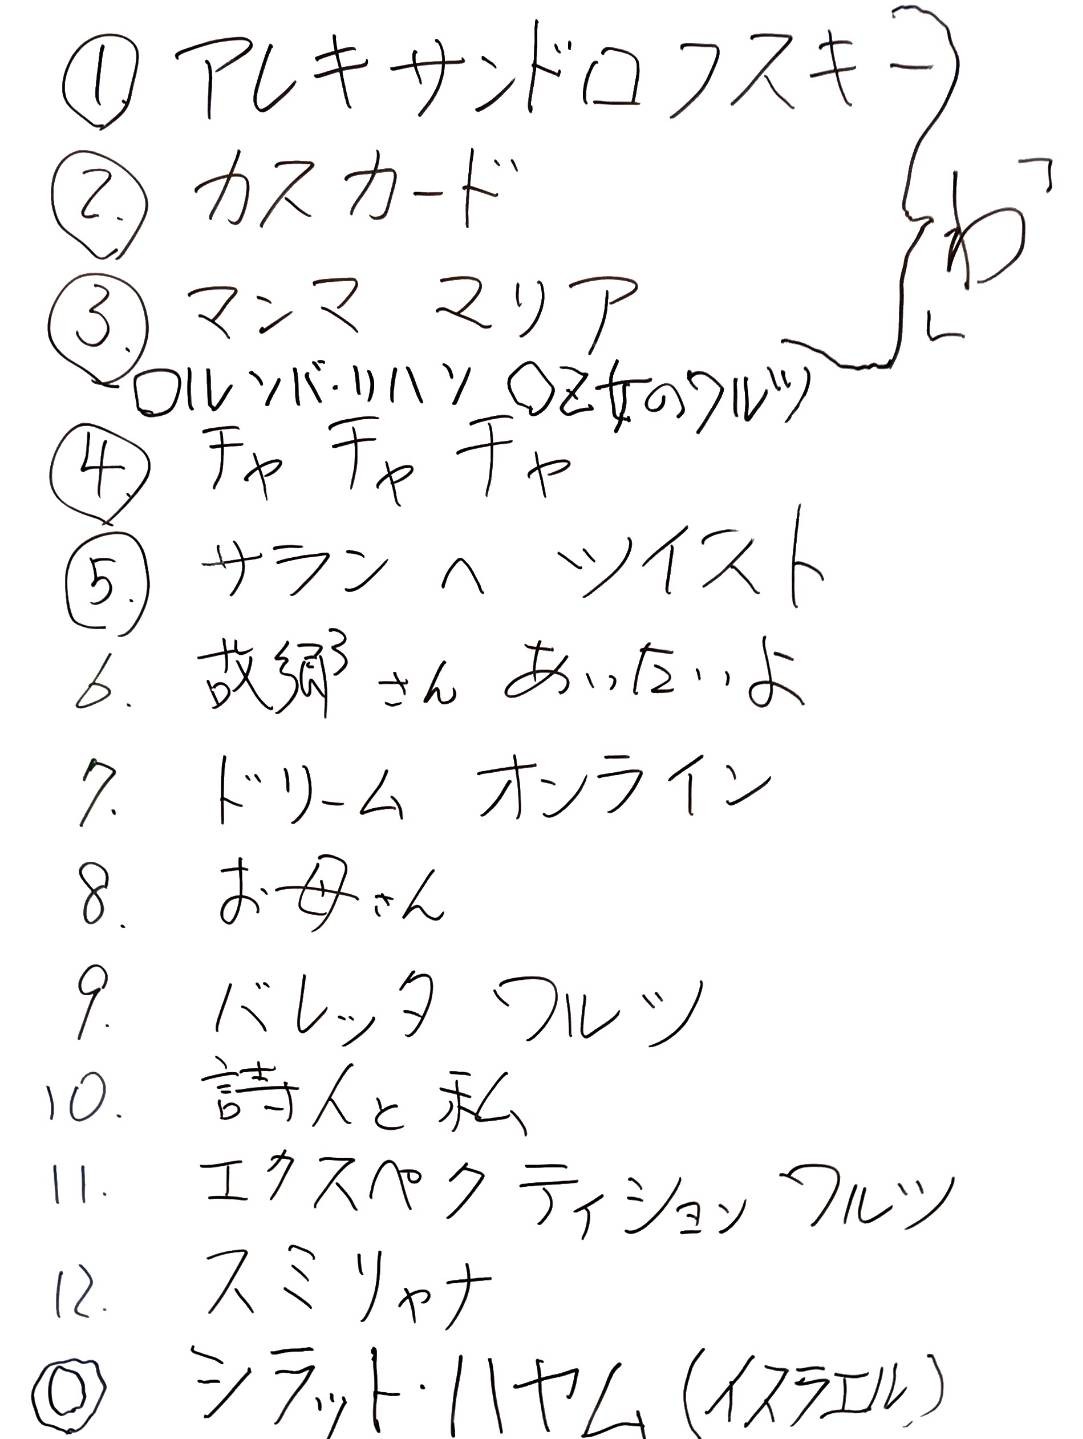 ① アレキサンドロフスキー
② カスカード 「わ」
③ マンマ マリア
○ルンバ・リハソ ○乙女のワルツ
④ チャ チャ チャ
⑤ サランヘ ツイスト
6. さん あいたいよ
7. ドリーム オンライン
8. お母さん
9. バレッタ ワルツ
10. 詩人と私
11. エクスペクティション ワルツ
12. スミリャナ
◎ シラット・ハヤム (イスラエル)